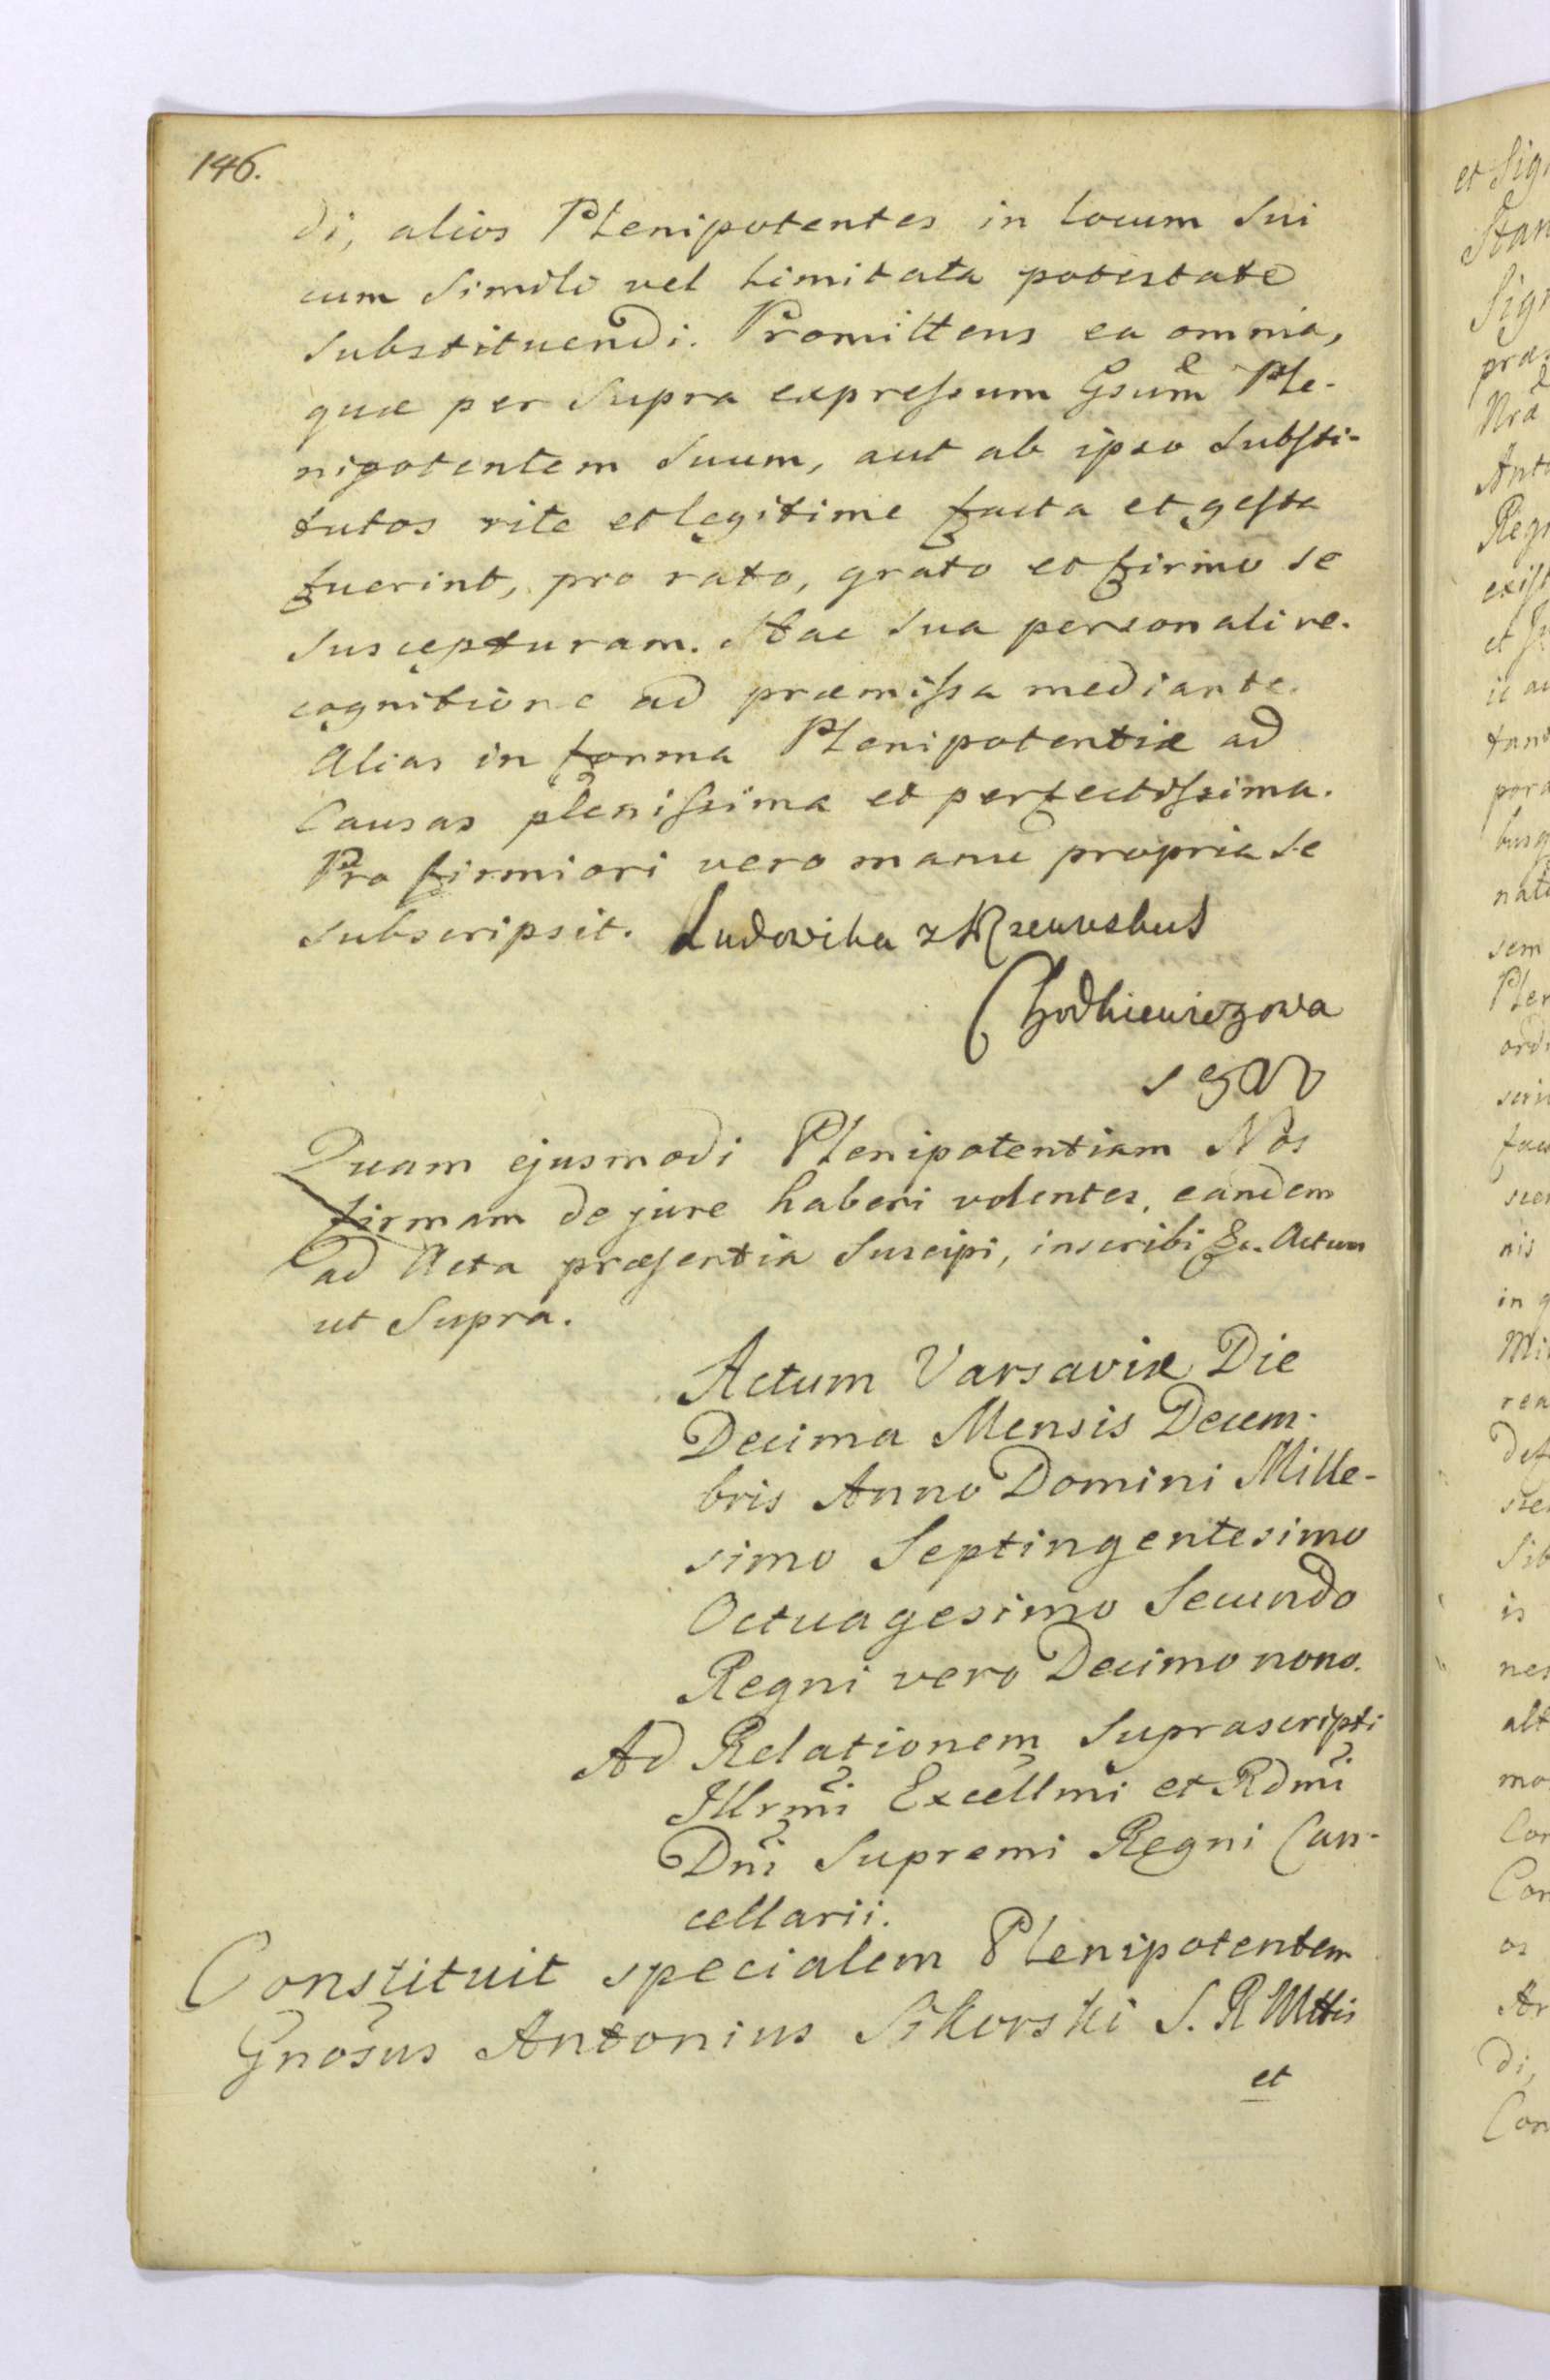 146.
di, alios Plenipotentes in locum Sui
cum Simili vel limitata potestate
Substituendi. Promittens ea omnia,
quæ per Supra expressum Gsum̃ Ple-
nipotentem Suum, aut ab ipso Substi-
tutos rite et legitime facta et gesta
fuerint, pro rato, grato et firmo se
Suscepturam. Hac Sua personali re-
cognitione ad præmissa mediante.
Alias in forma Plenipotentiæ ad
Causas plenissima et perfectissima.
Pro firmiori vero manu propria Se
Subscripsit. Ludowika z Rzewuskich
Chodkiewiczowa
Quam ejusmodi Plenipotentiam Nos
firmam de jure haberi volentes, eandem
ad Acta præsentia Suscipi, inscribi &c. Actum
ut Supra.
Actum Varsaviæ Die
Decima Mensis Decem-
bris Anno Domini Mille-
simo Septingentesimo
Octuagesimo Secundo
Regni vero Decimo nono.
Ad Relationem Suprascripti
Illrm̃i Excellm̃i et Rdm̃i
Dñi Supremi Regni Can-
cellarii.
Constituit specialem Plenipotentem
Gnosus Antonius Sikorski S. R Mttis
et
et Sig
Stan
Sig
præ
Nrã
Anto
Reg
exist
et
tan
por
busq
nat
sem
Ple
ord
scri
fac
nis
in
Mi
rea
def
Sib
is
nes
alt
mo
Con
Con
os
Ar
di,
Con